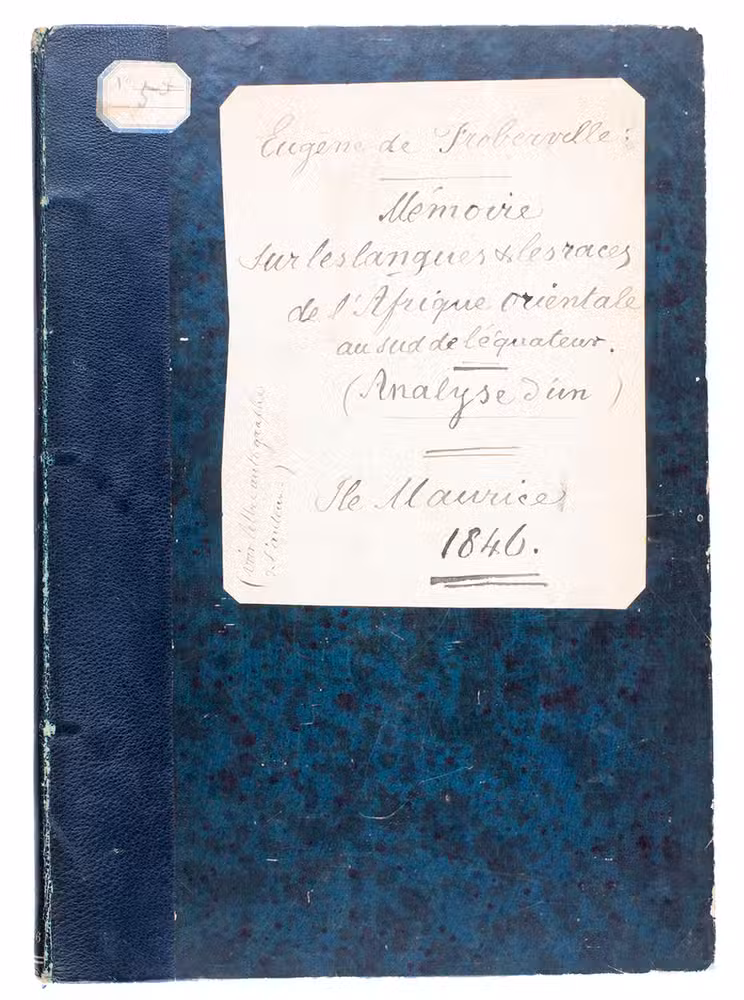 Nº 57
Eugène de Froberville :
Mémoire
sur les langues & les races
de l'Afrique orientale
au sud de l'équateur.
(Analyse d'un )
Ile Maurice
1846.
(voir lettre autographe
de l'auteur)
6